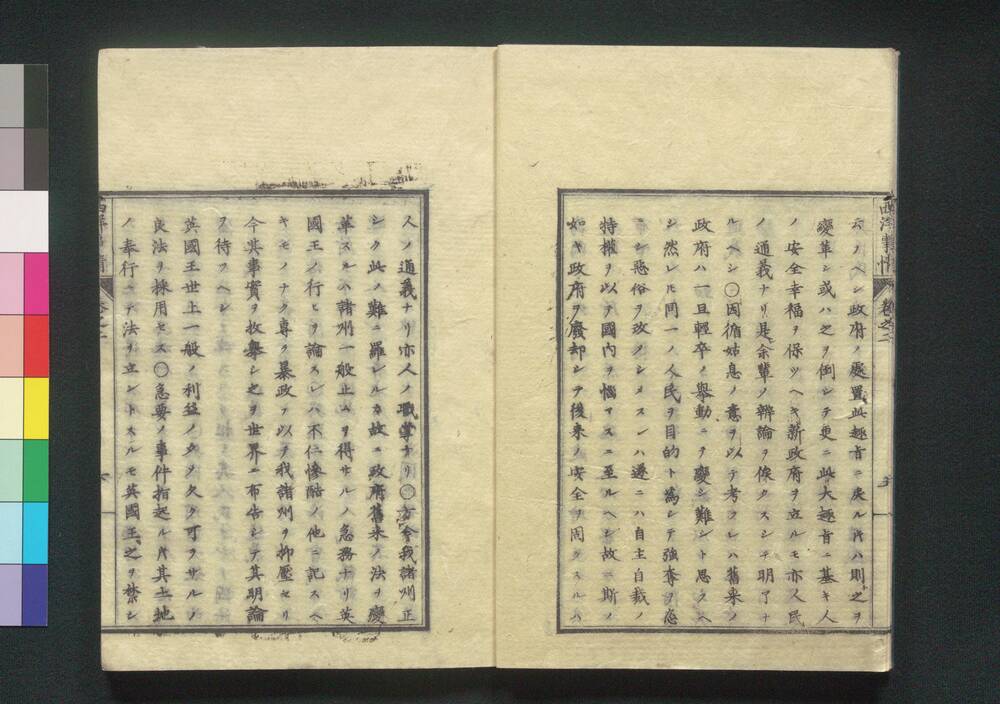 云フヘシ政府ノ處置此趣旨ニ戻ルキハ則之ヲ
變革シ或ハ之ヲ倒シテ更ニ此大趣旨ニ基キ人
ノ安全幸福ヲ保ツヘキ新政府ヲ立ルモ亦人民
ノ通義ナリ是余輩ノ辨論ヲ俟タスシテ明了ナ
ルヘシ〇因循姑息ノ意ヲ以テ考フレハ舊来ノ
政府ハ一旦輕卒ノ舉動ニテ變シ難シト思フヘ
シ然レ𪜈同一ノ人民ヲ目的ト為シテ強奪ヲ恣
ニシ惡俗ヲ改メシメスンハ遂ニハ自主自裁ノ
特權ヲ以テ國内ヲ惱マスニ至ルヘシ故ニ斯ノ
如キ政府ヲ廢却シテ後来ノ安全ヲ固クスルハ
西洋事情 卷之二
人ノ通義ナリ亦人ノ職掌ナリ〇方今我諸州正
シク此ノ難ニ罹レルカ故ニ政府舊来ノ法ヲ變
革スルハ諸州一般止ムヲ得サルノ急務ナリ英
國王ノ行ヒヲ論スレハ不仁慘酷ノ他ニ記スヘ
キモノナク專ラ暴政ヲ以テ我諸州ヲ抑壓セリ
今其事實ヲ枚舉シ之ヲ世界ニ布告シテ其明論
ヲ待フヘシ
英國王世上一般ノ利益ノタメ久ク可ラサルノ
良法ヲ採用セス〇急要ノ事件指起ルキ其土地
ノ奉行ニテ法ヲ立ントスルモ英國王之ヲ禁シ
西洋事情 卷之二
六